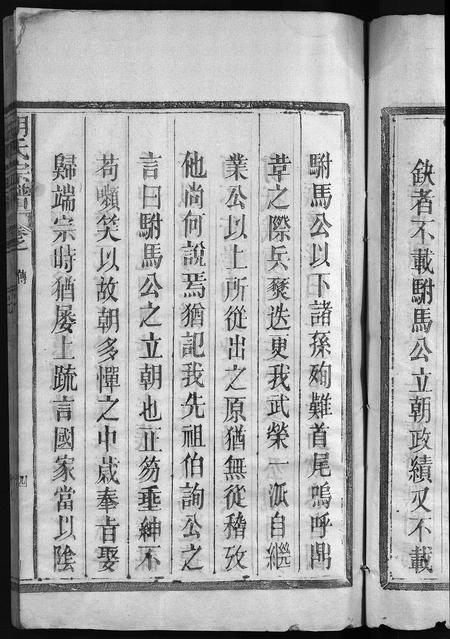 缺者不載駙馬公立朝政績又不載
駙馬公以下諸孫殉難首尾嗚呼鼎
革之際兵燹迭更我武榮一派自繼
業公以上所從出之原猶無從稽攷
他尚何說焉猶記我先祖伯詢公之
言曰駙馬公之立朝也正笏垂紳不
苟嚬笑以故朝多憚之中歲奉旨娶
歸端宗時猶屡上疏言國家當以陰
胡氏宗譜 卷之
傳
四